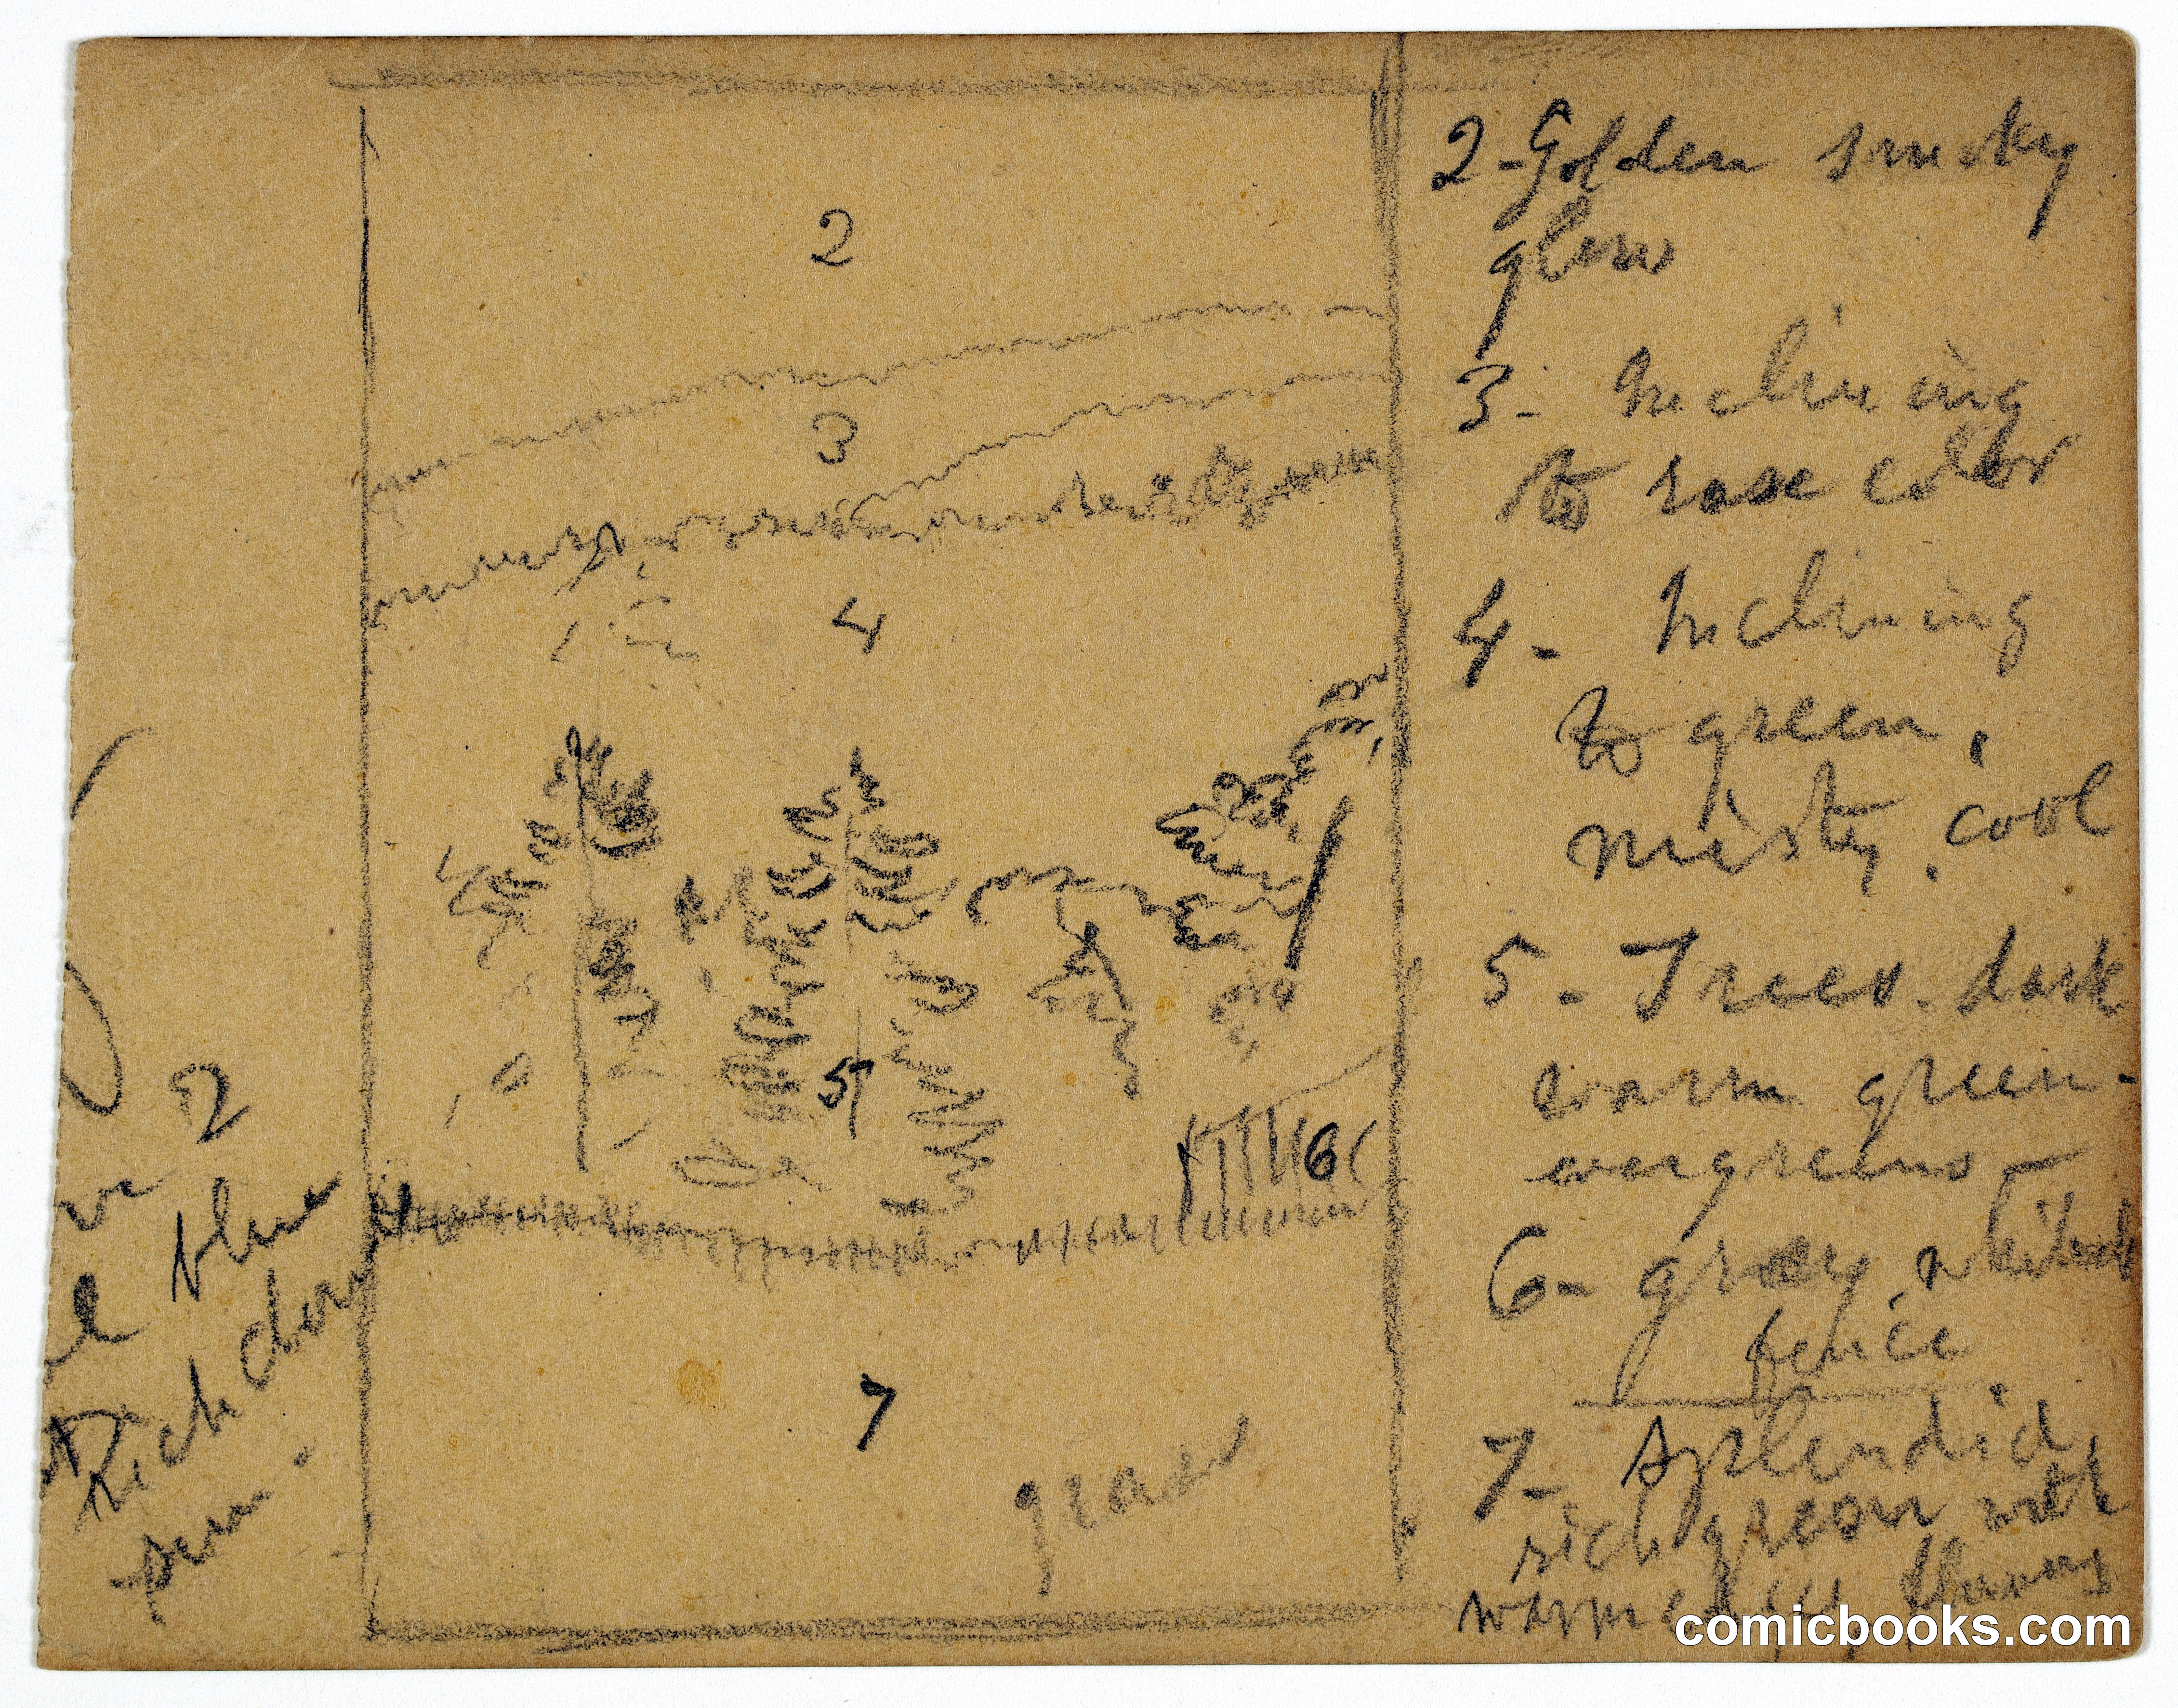 2
3
4
5
6
7
grass
2
blue
Rich
2-Golden smoky
glow
3- Inclining
to rose color
4- Inclining
to green,
misty, cool
5- Trees. dark
warm green-
evergreens-
6- grey
fence
7- Splendid,
rich green with
warmed
comicbooks.com